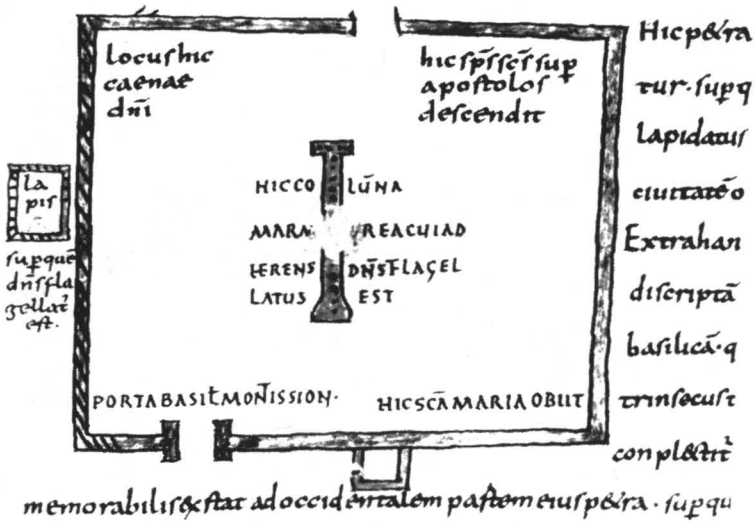 locus hic
caenae
dn̄i
hic sp̄s sc̄s sup̱
apostolos
descendit
Hic p&ra
tur · sup̱ q
lapidatus
ciuitatē o
Extrahan
discriptā
basilicā · q
trinsecus t
conplectit̄
la
pis
sup̱ quē
dn̄s fla
gellat̄
est.
HIC COLŪNA
REA CUI AD
HERENS DN̄S FLAGEL
LATUS EST
PORTA BASIŁ MONT̄ISSION·
HIC SCĀ MARIA OBIIT
memorabilis &stat ad occidentalem partem eius p&ra · sup̱ qu